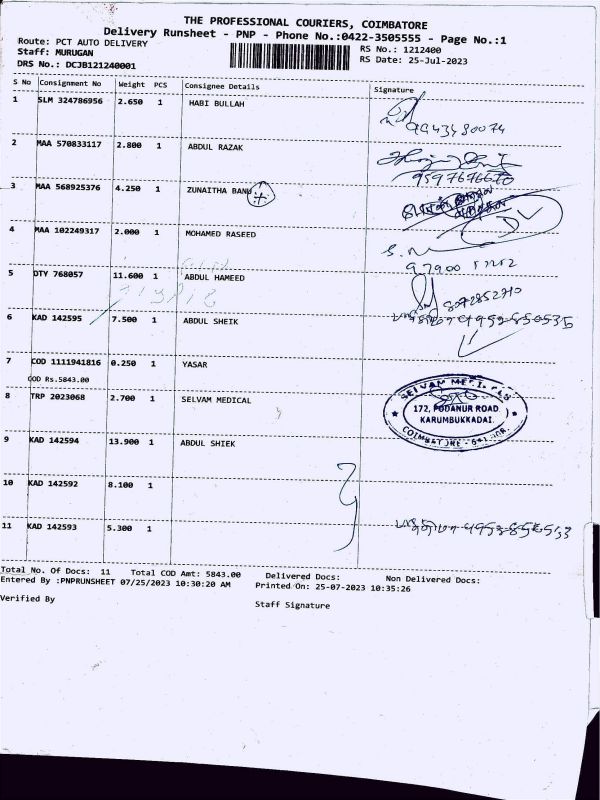 THE PROFESSIONAL COURIERS, COIMBATORE
Delivery Runsheet - PNP - Phone No.:0422-3505555 - Page No.:1
Route: PCT AUTO DELIVERY
RS No.: 1212400
Staff: MURUGAN
RS Date: 25-Jul-2023
DRS No.: DCJB121240001
S No Consignment No Weight PCS Consignee Details Signature
1 SLM 324786956 2.650 1 HABI BULLAH
2 MAA 570833117 2.800 1 ABDUL RAZAK
3 MAA 568925376 4.250 1 ZUNAITHA BANU
4 MAA 102249317 2.000 1 MOHAMED RASEED
5 DTY 768057 11.600 1 ABDUL HAMEED
8072852710
6 KAD 142595 7.500 1 ABDUL SHEIK
7 COD 1111941816 0.250 1 YASAR
COD Rs.5843.00
8 TRP 2023068 2.700 1 SELVAM MEDICAL
172, PODANUR ROAD
KARUMBUKKADAI.
9 KAD 142594 13.900 1 ABDUL SHIEK
10 KAD 142592 8.100 1
11 KAD 142593 5.300 1
Total No. Of Docs: 11 Total COD Amt: 5843.00 Delivered Docs: Non Delivered Docs:
Entered By :PNPRUNSHEET 07/25/2023 10:30:20 AM Printed On: 25-07-2023 10:35:26
Verified By
Staff Signature